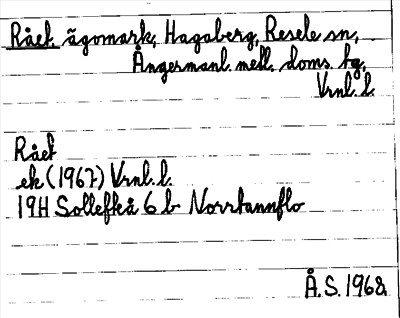 Rået ägomark, Hagaberg, Resele sn,
Ångermanl. mell. doms. hg,
Vrnl. l.
Rået
ek (1967) Vrnl. l.
19H Sollefteå 6 b Norrtannflo
Å.S. 1968.